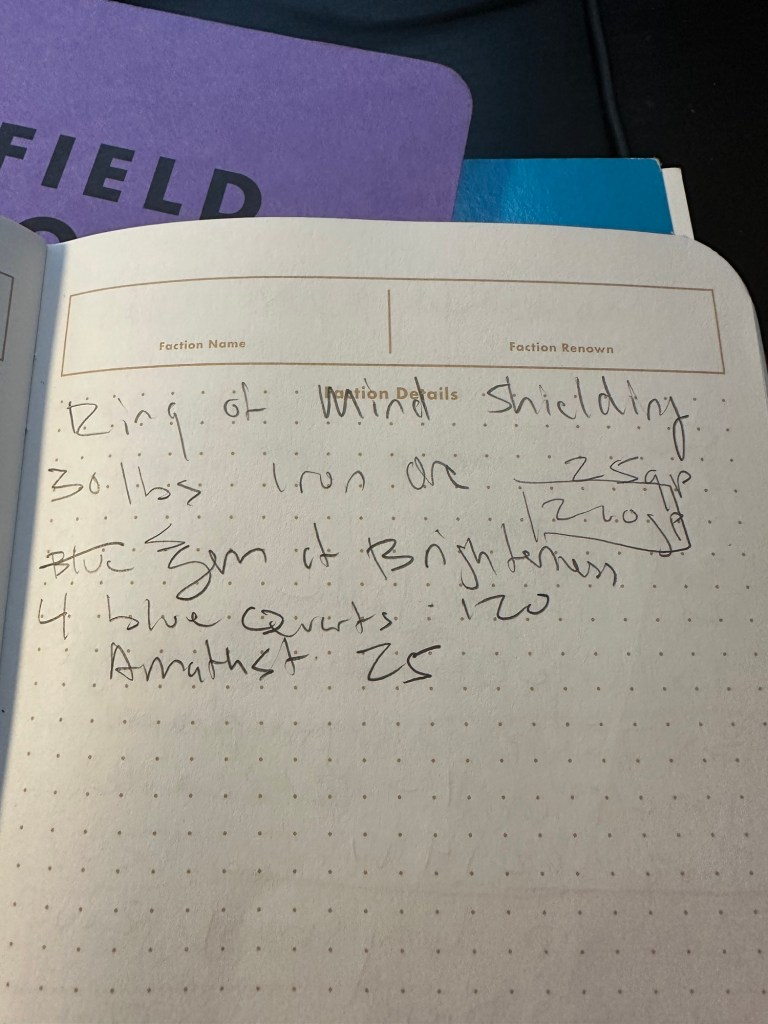 FIELD
Faction Name
Faction Renown
Faction Details
Ring of Mind Shielding
30 lbs Iron ore 25gp
220gp
Blue Gem of Brighteness
4 blue Qvarts : 120
Amathst 25